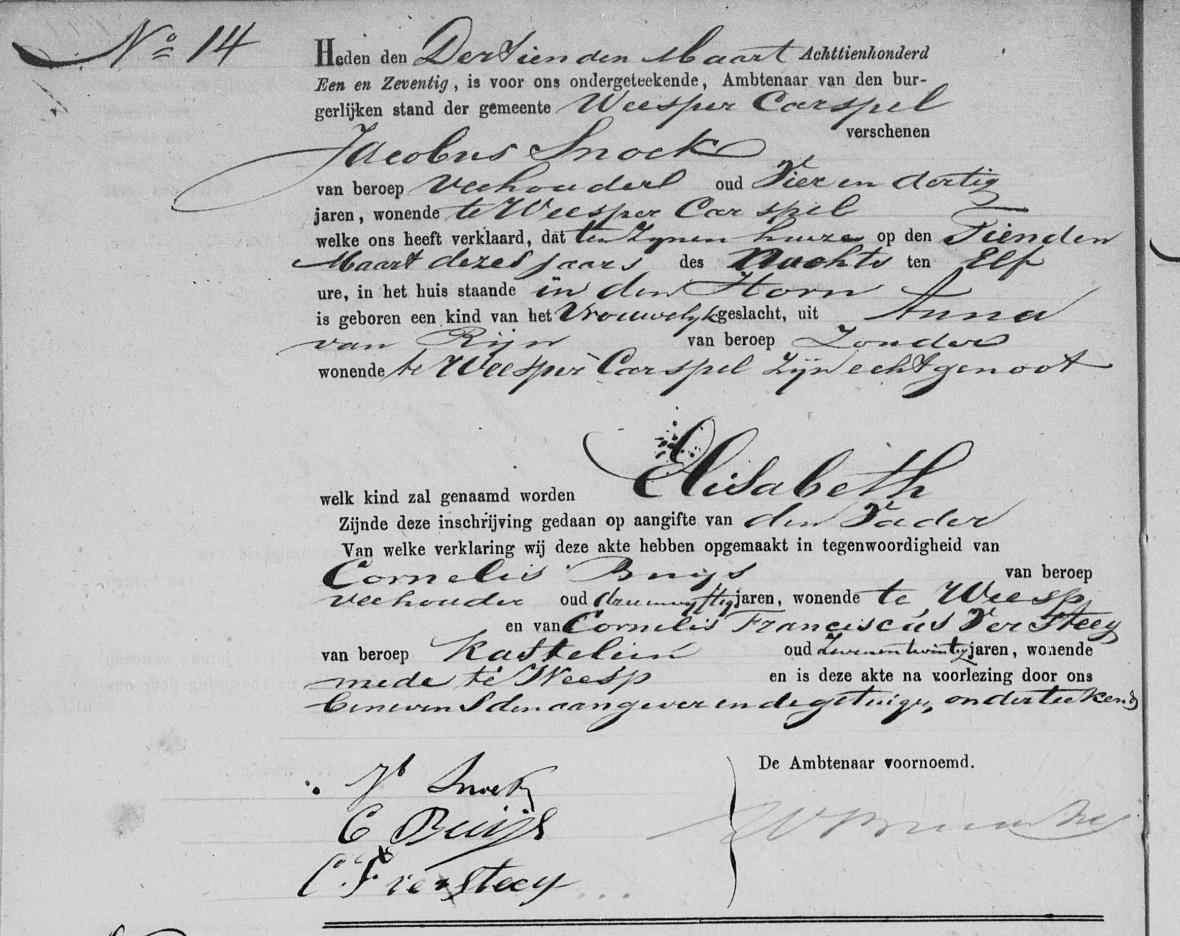 No 14
Heden den Dertienden Maart Achttienhonderd
Een en Zeventig, is voor ons ondergeteekende, Ambtenaar van den bur-
gerlijken stand der gemeente Weesper Carspel
verschenen
Jacobus Snoek
van beroep Veehouder oud Vier en dertig
jaren, wonende te Weesper Carspel
welke ons heeft verklaard, dat ten zynen huize op den Tienden
Maart dezes jaars des Nachts ten Elf
ure, in het huis staande in den Horn
is geboren een kind van het Vrouwelyk geslacht, uit Anna
van Rijn van beroep Zonder
wonende te Weesper Carspel zijn echtgenoot
welk kind zal genaamd worden Elisabeth
Zijnde deze inschrijving gedaan op aangifte van den Vader
Van welke verklaring wij deze akte hebben opgemaakt in tegenwoordigheid van
Cornelis Buijs van beroep
veehouder oud jaren, wonende te Weesp
en van Cornelis Franciscus Ver Steeg
van beroep Kastelein oud Zevenentwintig jaren, wonende
mede te Weesp en is deze akte na voorlezing door ons
benevens den aangever en de getuigen onderteekend
De Ambtenaar voornoemd.
Jb Snoek
C Buijs
C. F Versteeg